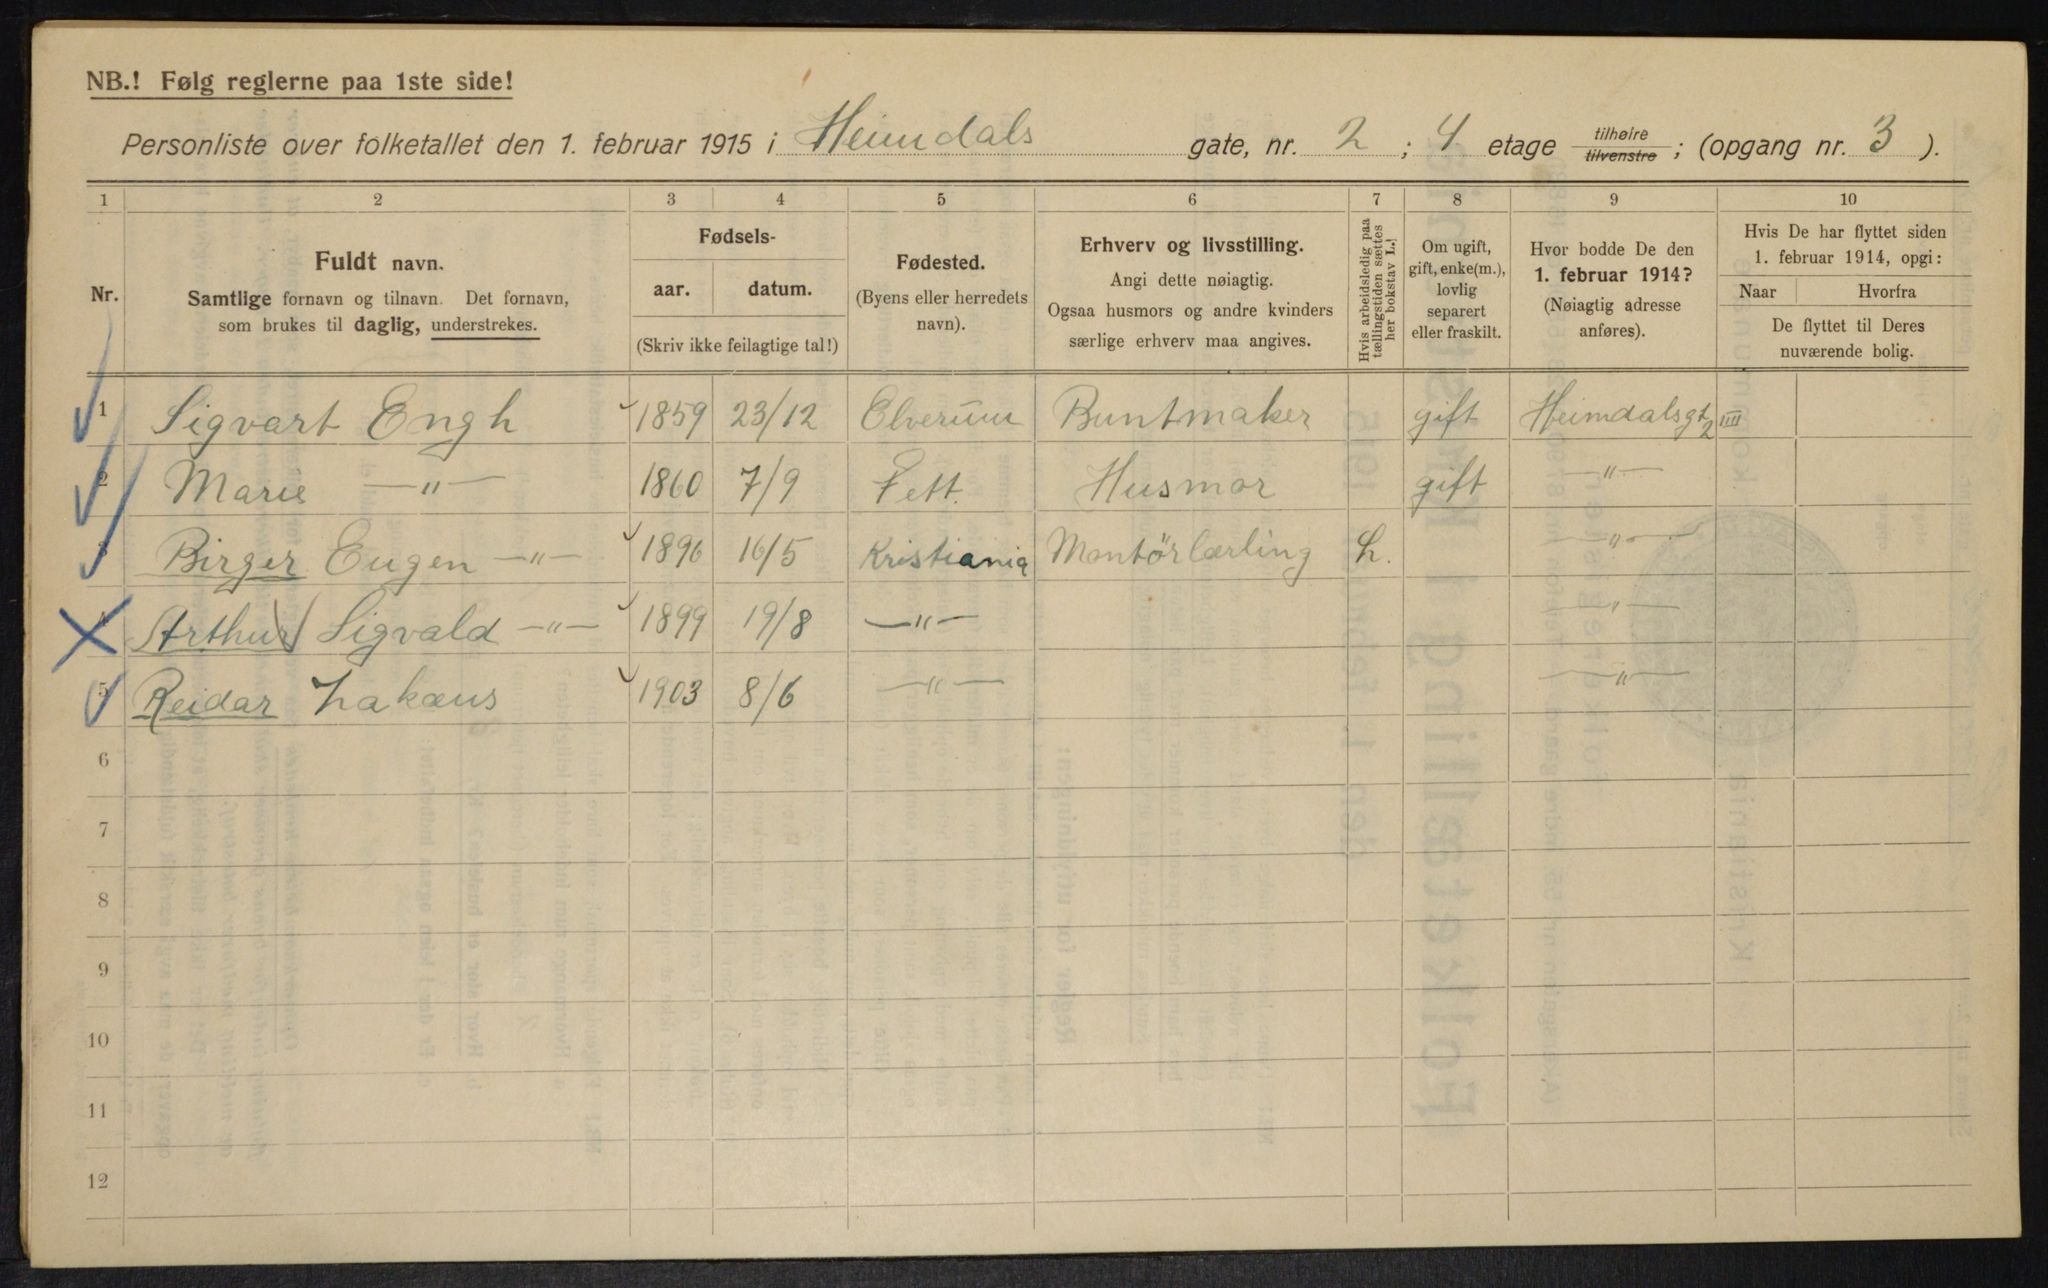 NB.! Følg reglerne paa 1ste side!
Personliste over folketallet den 1. februar 1915 i Heimdals gate, nr. 2 ; 4 etage tilhøire / tilvenstre ; (opgang nr. 3 ).
1 2 3 4 5 6 7 8 9 10
Nr.
Fuldt navn.
Samtlige fornavn og tilnavn. Det fornavn,
som brukes til daglig, understrekes.
Fødsels-
aar. datum.
(Skriv ikke feilagtige tal!)
Fødested.
(Byens eller herredets
navn).
Erhverv og livsstilling.
Angi dette nøiagtig.
Ogsaa husmors og andre kvinders
særlige erhverv maa angives.
Hvis arbeidsledig paa
tællingstiden sættes
her bokstav L.!
Om ugift,
gift, enke(m.),
lovlig
separert
eller fraskilt.
Hvor bodde De den
1. februar 1914?
(Nøiagtig adresse
anføres).
Hvis De har flyttet siden
1. februar 1914, opgi:
Naar Hvorfra
De flyttet til Deres
nuværende bolig.
1 Sigvart Engh 1859 23/12 Elverum Buntmaker gift Heimdalsgt 2 IIII
2 Marie —"— 1860 7/9 Fett. Husmor gift —"—
3 Birger Eugen —"— 1896 16/5 Kristiania Montörlærling L. —"—
4 Arthur Sigvald —"— 1899 19/8 —"— —"—
5 Reidar Zakæus 1903 8/6 —"— —"—
6
7
8
9
10
11
12